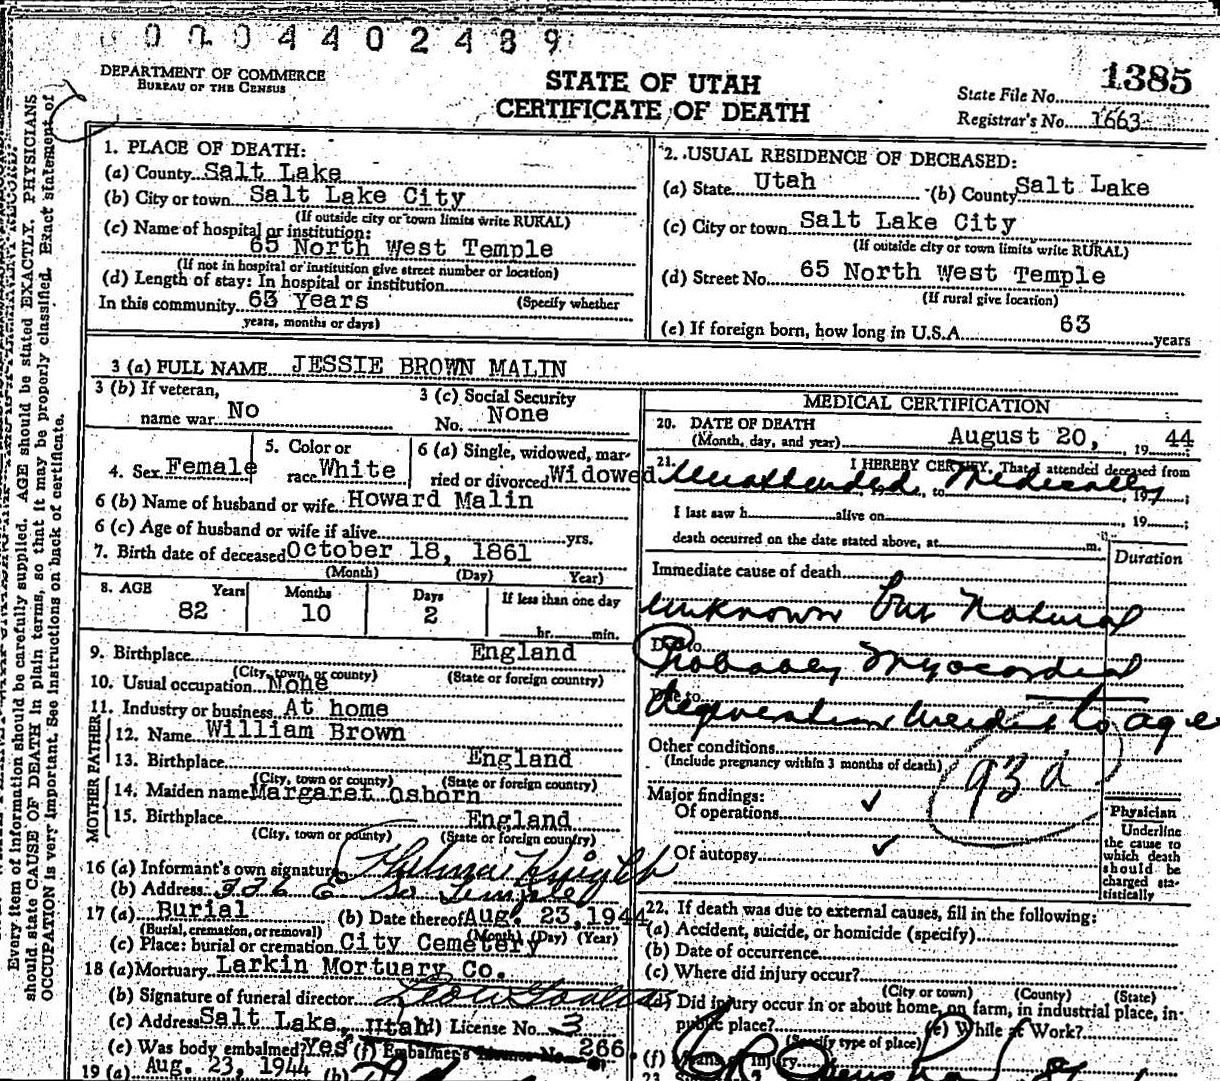 0004402489
DEPARTMENT OF COMMERCE
BUREAU OF THE CENSUS
STATE OF UTAH
CERTIFICATE OF DEATH
1385
State File No.
Registrar's No. 1663
Every item of information should be carefully supplied. AGE should be stated EXACTLY. PHYSICIANS
should state CAUSE OF DEATH in plain terms, so that it may be properly classified. Exact statement of
OCCUPATION is very important. See instructions on back of certificate.
1. PLACE OF DEATH:
(a) County Salt Lake
(b) City or town Salt Lake City
(If outside city or town limits write RURAL)
(c) Name of hospital or institution:
65 North West Temple
(If not in hospital or institution give street number or location)
(d) Length of stay: In hospital or institution
In this community 63 Years (Specify whether
years, months or days)
2. USUAL RESIDENCE OF DECEASED:
(a) State Utah (b) County Salt Lake
(c) City or town Salt Lake City
(If outside city or town limits write RURAL)
(d) Street No. 65 North West Temple
(If rural give location)
(e) If foreign born, how long in U.S.A. 63 years
3 (a) FULL NAME JESSIE BROWN MALIN
3 (b) If veteran,
name war No
3 (c) Social Security
No. None
4. Sex Female
5. Color or
race White
6 (a) Single, widowed, mar-
ried or divorced Widowed
6 (b) Name of husband or wife Howard Malin
6 (c) Age of husband or wife if alive yrs.
7. Birth date of deceased October 18, 1861
(Month) (Day) Year)
8. AGE Years Months Days If less than one day
82 10 2 hr. min.
9. Birthplace England
(City, town, or county) (State or foreign country)
10. Usual occupation None
11. Industry or business At home
FATHER
12. Name William Brown
13. Birthplace England
(City, town or county) (State or foreign country)
MOTHER
14. Maiden name Margaret Osborn
15. Birthplace England
(City, town or county) (State or foreign country)
16 (a) Informant's own signature Thelma Knight
(b) Address 336 E So Temple
17 (a) Burial (b) Date thereof Aug. 23, 1944
(Burial, cremation, or removal) (Month) (Day) (Year)
(c) Place: burial or cremation City Cemetery
18 (a) Mortuary Larkin Mortuary Co.
(b) Signature of funeral director
(c) Address Salt Lake, Utah (d) License No. 3
(e) Was body embalmed? Yes (f) Embalmer's License No. 266.
19 (a) Aug. 23, 1944 (b)
MEDICAL CERTIFICATION
20. DATE OF DEATH
(Month, day, and year) August 20, 19 44
21. I HEREBY CERTIFY, That I attended deceased from
Unattended, to Medically, 19
I last saw h alive on , 19 ;
death occurred on the date stated above, at m.
Duration
Immediate cause of death
Unknown but Natural
Due to
Probabley Myocardial
Due to
degeneration incident to age
Other conditions
(Include pregnancy within 3 months of death)
93d
Major findings:
Of operations ✓
Of autopsy ✓
Physician
Underline
the cause to
which death
should be
charged sta-
tistically
22. If death was due to external causes, fill in the following:
(a) Accident, suicide, or homicide (specify)
(b) Date of occurrence
(c) Where did injury occur?
(City or town) (County) (State)
(d) Did injury occur in or about home, on farm, in industrial place, in
public place? (e) While at Work?
(Specify type of place)
(f) Means of injury
23